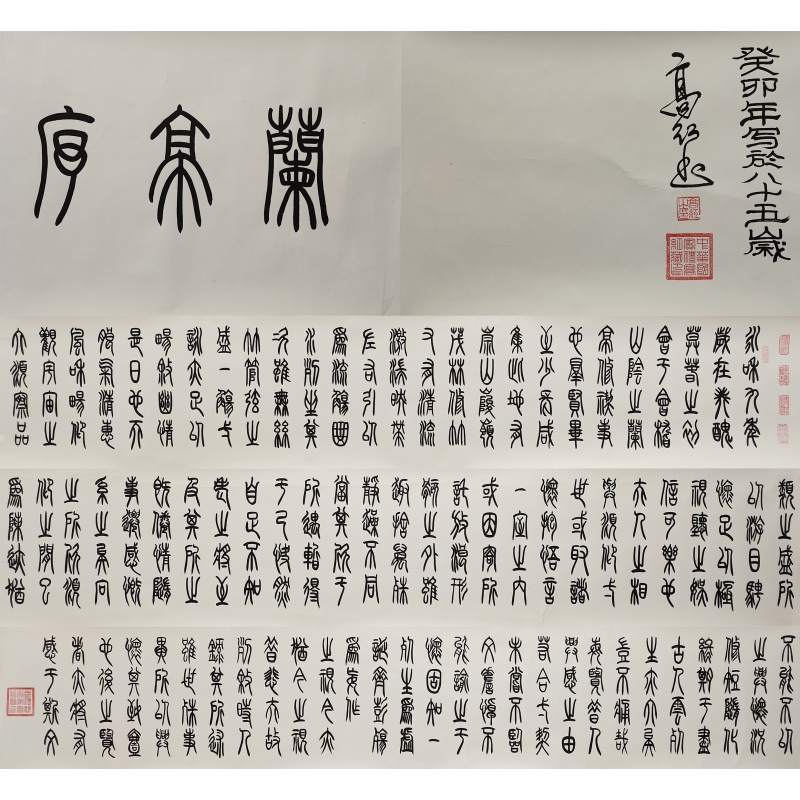 蘭亭序
癸卯年写於八十五歲
高
永和九年
歲在癸醜
莫春之初
會于會稽
山陰之蘭
亭修禊事
也羣賢畢
至少長咸
集此地有
崇山峻嶺
茂林修竹
又有清流
激湍映帶
左右引以
為流觴曲
水列坐其
次雖無絲
竹管弦之
盛一觴弌
詠亦足以
暢敘幽情
是日也天
朗氣清惠
風和暢仰
觀宇宙之
大俯察品
類之盛所
以游目騁
懷足以極
視聽之娛
信可樂也
夫人之相
與俯仰弌
世或取諸
懷抱悟言
一室之內
或因寄所
託放浪形
骸之外雖
趣捨萬殊
靜躁不同
當其欣于
所遇暫得
于己快然
自足不知
老之將至
及其所之
既倦情隨
事遷感慨
系之矣向
之所欣俯
仰之間已
為陳迹猶
不能不以
之興懷況
修短隨化
終期于盡
古人云死
生亦大矣
豈不痛哉
每覽昔人
興感之由
若合弌契
未嘗不臨
文嗟悼不
能喻之于
懷固知一
死生為虛
誕齊彭殤
為妄作
之視今亦
猶今之視
昔悲夫故
列敘時人
錄其所述
雖世殊事
異所以興
懷其致壹
也後之覽
者亦將有
感于斯文